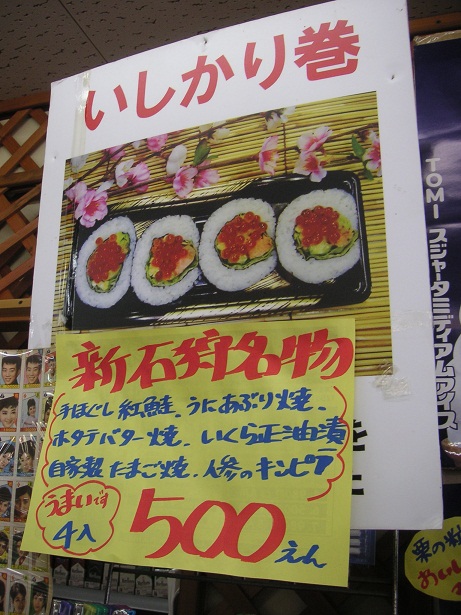 いしかり巻
新石狩名物
手ほぐし紅鮭、うにあぶり焼、
ホタテバター焼、いくら正油漬
自家製たまご焼、人参のキンピラ
うまいです
4入
500えん
TOMIZ スジャータミディアムアイス
栗の
おいし